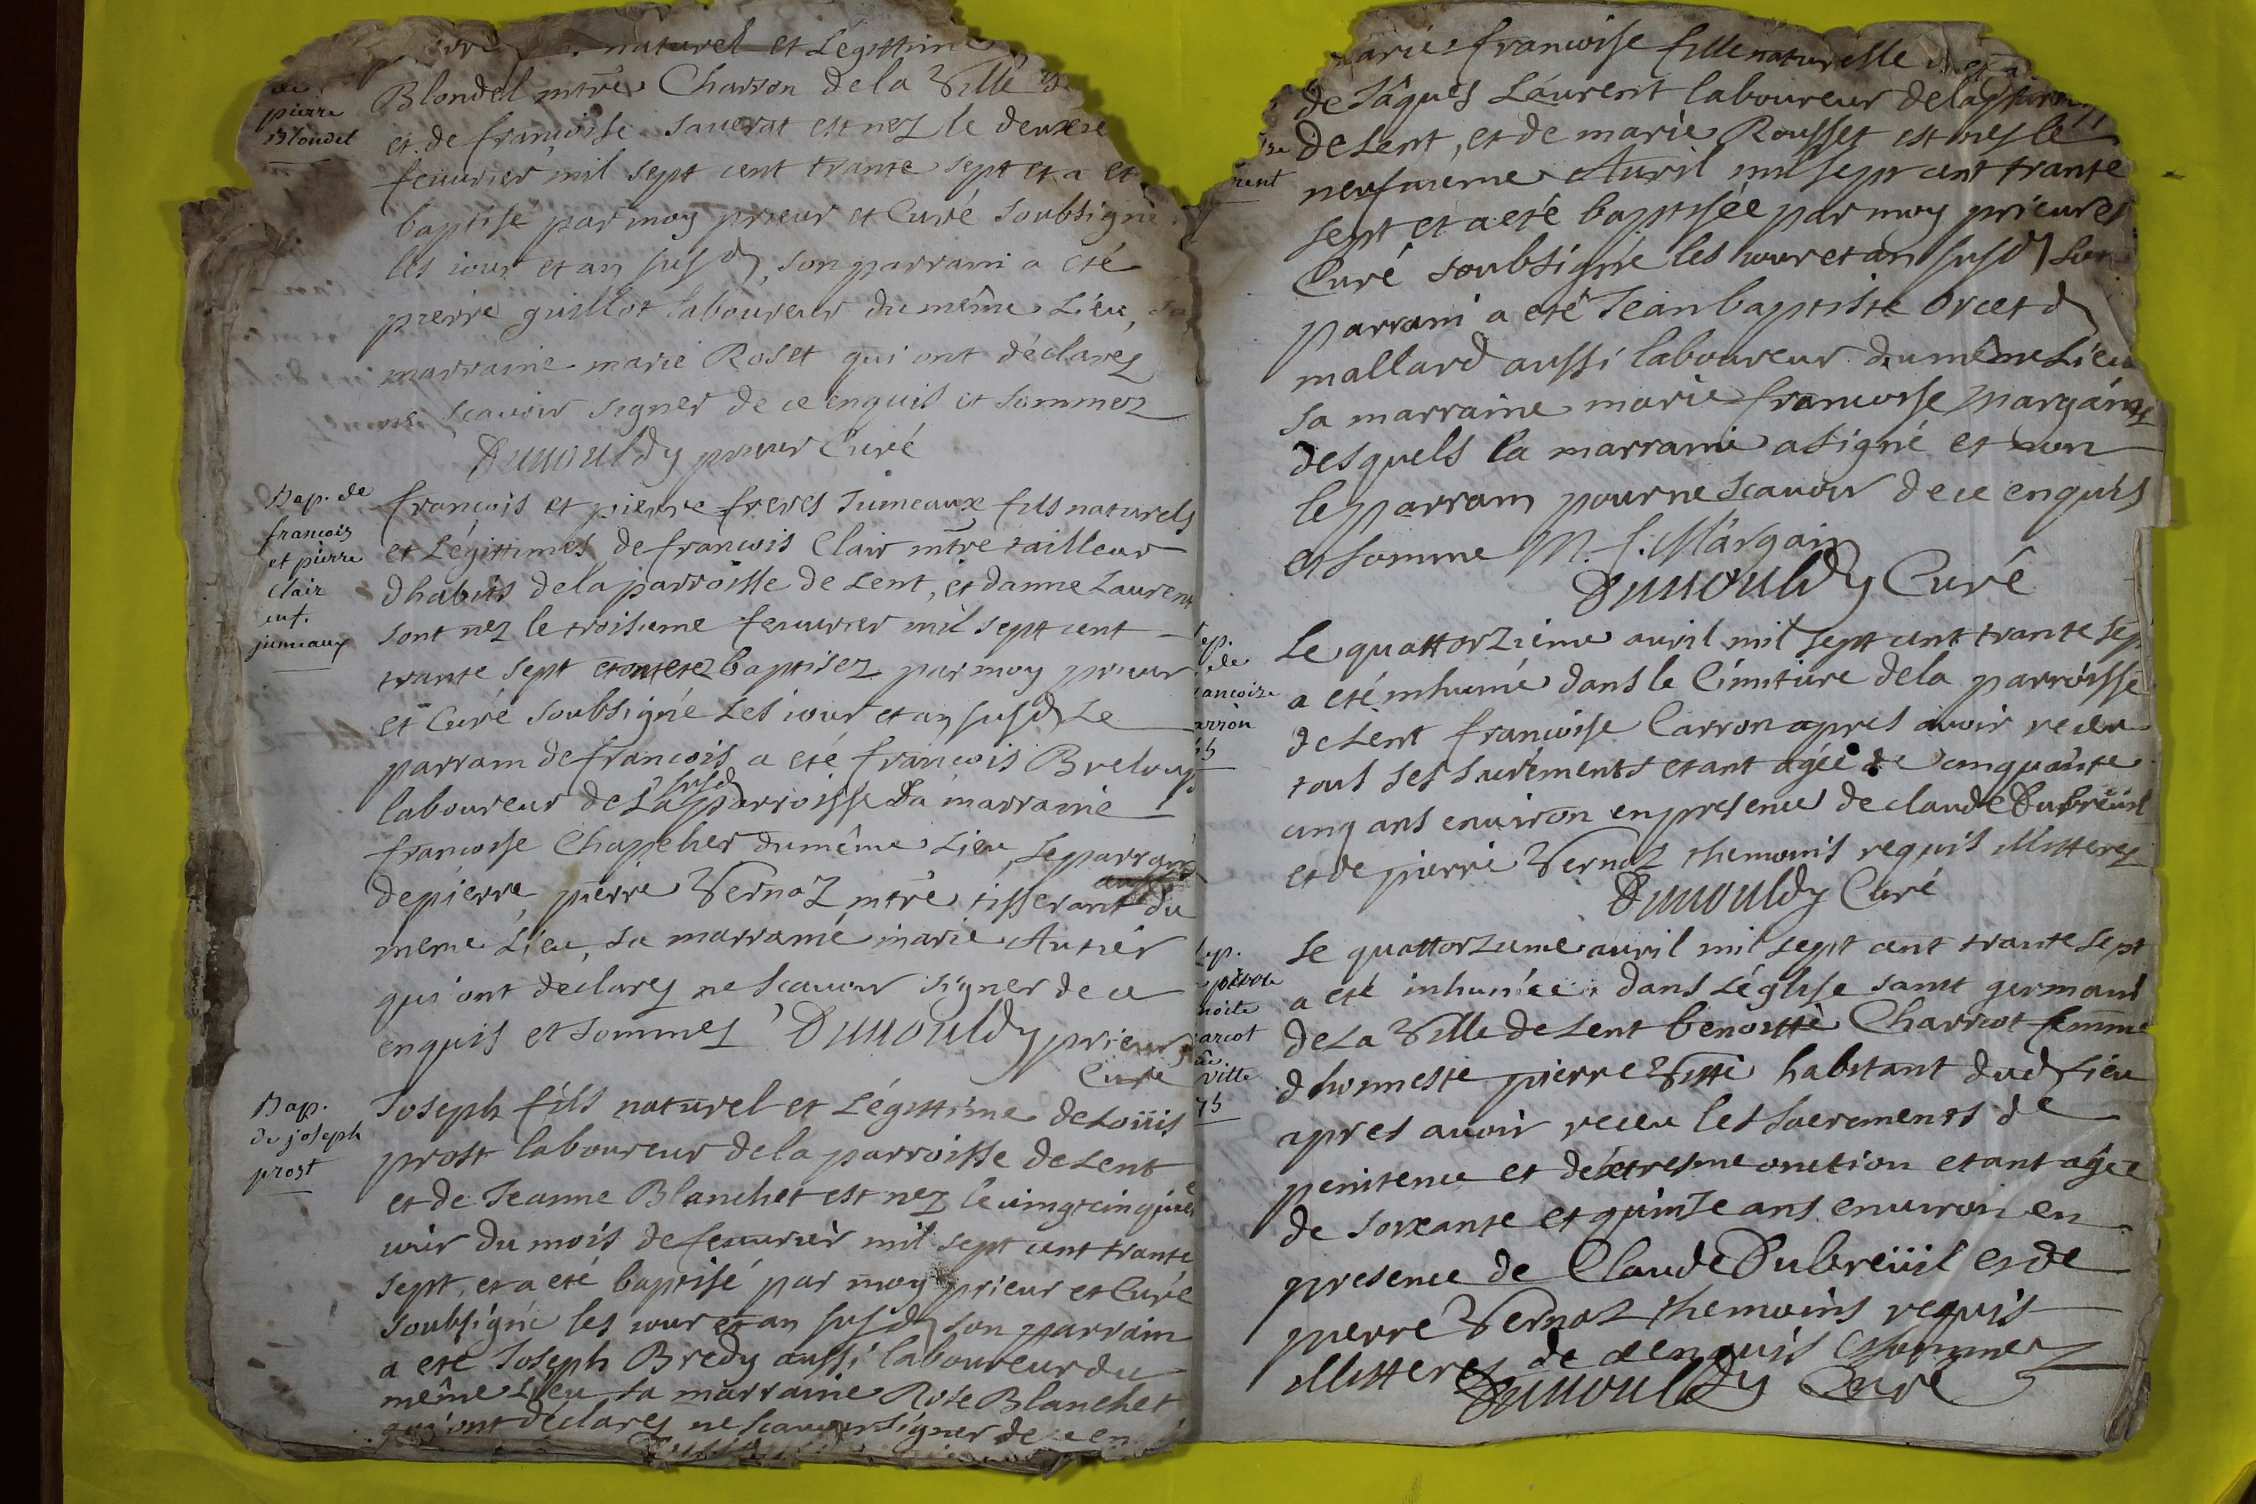 naturel et Légittime
de
pierre
Blondel
Blondel mtre Charron de la Ville
et de françoise Sauerat est nez le deuxie
feuurier mil sept cent trante sept et a et
baptisé par moy prieur et Curé soubsigné
les iour et an susd, son parrain a eté
pierre guillot laboureur du même Lieu, sa
marraine marie Roset qui ont déclarez
ne scauoir signer de ce enquis et sommez
Dumouldy prieur Curé
Bap. de
francois
et pierre
Clair
enf.
jumeaux
françois et pierre freres Jumeaux fils naturels
et Légittimes de francois Clair mtre tailleur
dhabits de la parroisse de Lent, et danne Laurent
sont nez le troisieme feuurier mil sept cent
trante sept et ont eté baptisez par moy prieur
et Curé soubsigné Les iour et an susd Le
parrain de francois a eté francois Breloup
laboureur de La susd parroisse Sa marraine
francoise Chapelier du même Lieu, Le parrain
de pierre, pierre Vernoz mtre tisserant du
meme Lieu, Sa marraine marie Autier
qui ont declarez ne Scauoir signer de ce
enquis et sommez Dumouldy prieur
Curé
Bap.
de joseph
prost
Joseph fils naturel et Légittime de Loüis
prost laboureur de la parroisse de Lent
et de Jeanne Blanchet est nez le vingtcinquie
iour du mois de feuurier mil sept cent trante
sept, et a eté baptisé par moy prieur et Curé
soubsigné les iour et an susd son parrain
a eté Joseph Bredy aussi laboureur du
même Lieu sa marraine Rose Blanchet
qui ont déclarez ne scauoir signer de ce en
arie francoise fille naturelle
de Jâques Laurent laboureur de la parroi
de Lent, et de marie Rousset est nes le
neufuieme Auril mil sept cent trante
sept et a eté baptisée par moy prieur et
Curé soubsigné les iour et an susd son
parrain a eté Jean baptiste orcet d
mallard aussi laboureur du même Lieu
sa marraine marie francoise Margain
desquels la marraine a signé et non
le parrain pour ne scauoir de ce enquis
et somme M. f. Margain
Dumouldy Curé
ep.
de
ancoise
arron
Le quattorzieme auril mil sept cent trante sep
a eté inhumé dans le Cimitiere de la parroisse
de Lent francoise Carron apres auoir receu
tous ses Sacrements etant agée de cinquante
cinq ans enuiron en presence de claude Dubreüil
et de pierre Vernoz themoins requis Illitterez
Dumouldy Curé
noite
arcot
ville
Le quattorzieme auril mil sept cent trante sept
a eté inhumée dans L'église saint germain
de La Ville de Lent benoitte Charcot femme
dhonneste pierre Vitte habitant dud Lieu
apres auoir receu les Sacrements de
penitence et déxtresme onction etant agée
de soixante et quinze ans enuiron en
presence de Claude Dubreüil et de
pierre Vernoz themoins requis
Illitterez de ce enquis et sommez
Dumouldy Curé